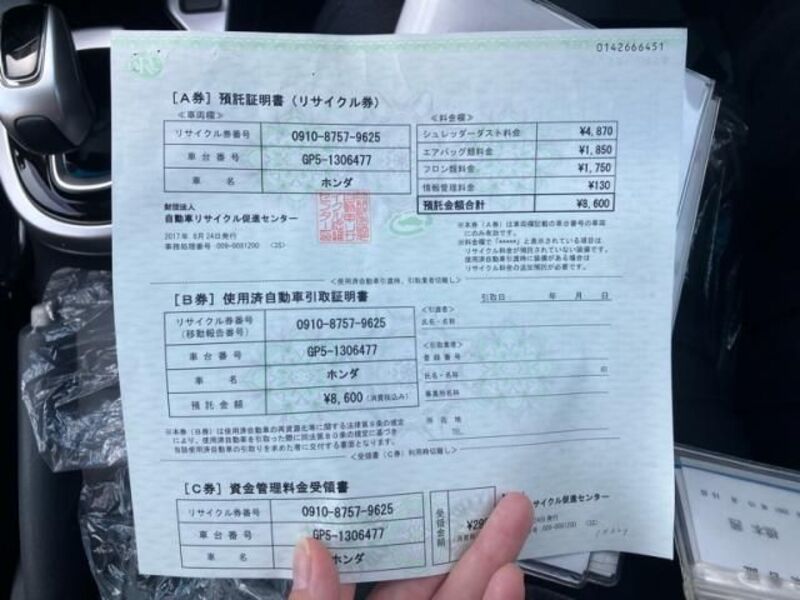 0142666451
[A券] 預託証明書 (リサイクル券)
<車両欄>
リサイクル券番号 0910-8757-9625
車台番号 GP5-1306477
車名 ホンダ
<料金欄>
シュレッダーダスト料金 ¥4,870
エアバッグ類料金 ¥1,850
フロン類料金 ¥1,750
情報管理料金 ¥130
預託金額合計 ¥8,600
財団法人
自動車リサイクル促進センター
2017年 8月24日発行
事務処理番号 :009-0081200 (2S)
※本券(A券)は車両欄記載の車台番号の車両
にのみ有効です。
※料金欄で「*****」と表示されている項目は
リサイクル料金が預託されていない装備です。
使用済自動車引渡時に装備がある場合は
リサイクル料金の追加預託が必要です。
<使用済自動車引渡時、引取業者切離し>
[B券] 使用済自動車引取証明書
リサイクル券番号 0910-8757-9625
(移動報告番号)
車台番号 GP5-1306477
車名 ホンダ
預託金額 ¥8,600 (消費税込み)
引取日 年 月 日
<引渡者>
氏名・名称
<引取業者>
登録番号
氏名・名称 印
事業所名称
所在地
TEL
※本券(B券)は使用済自動車の再資源化等に関する法律第9条の規定
により、使用済自動車を引取った際に同法第80条の規定に基づき
当該使用済自動車の引取りを求めた者に交付する書面となります。
<受領書(C券)利用時切離し>
[C券] 資金管理料金受領書
リサイクル券番号 0910-8757-9625
車台番号 GP5-1306477
車名 ホンダ
受領金額
サイクル促進センター